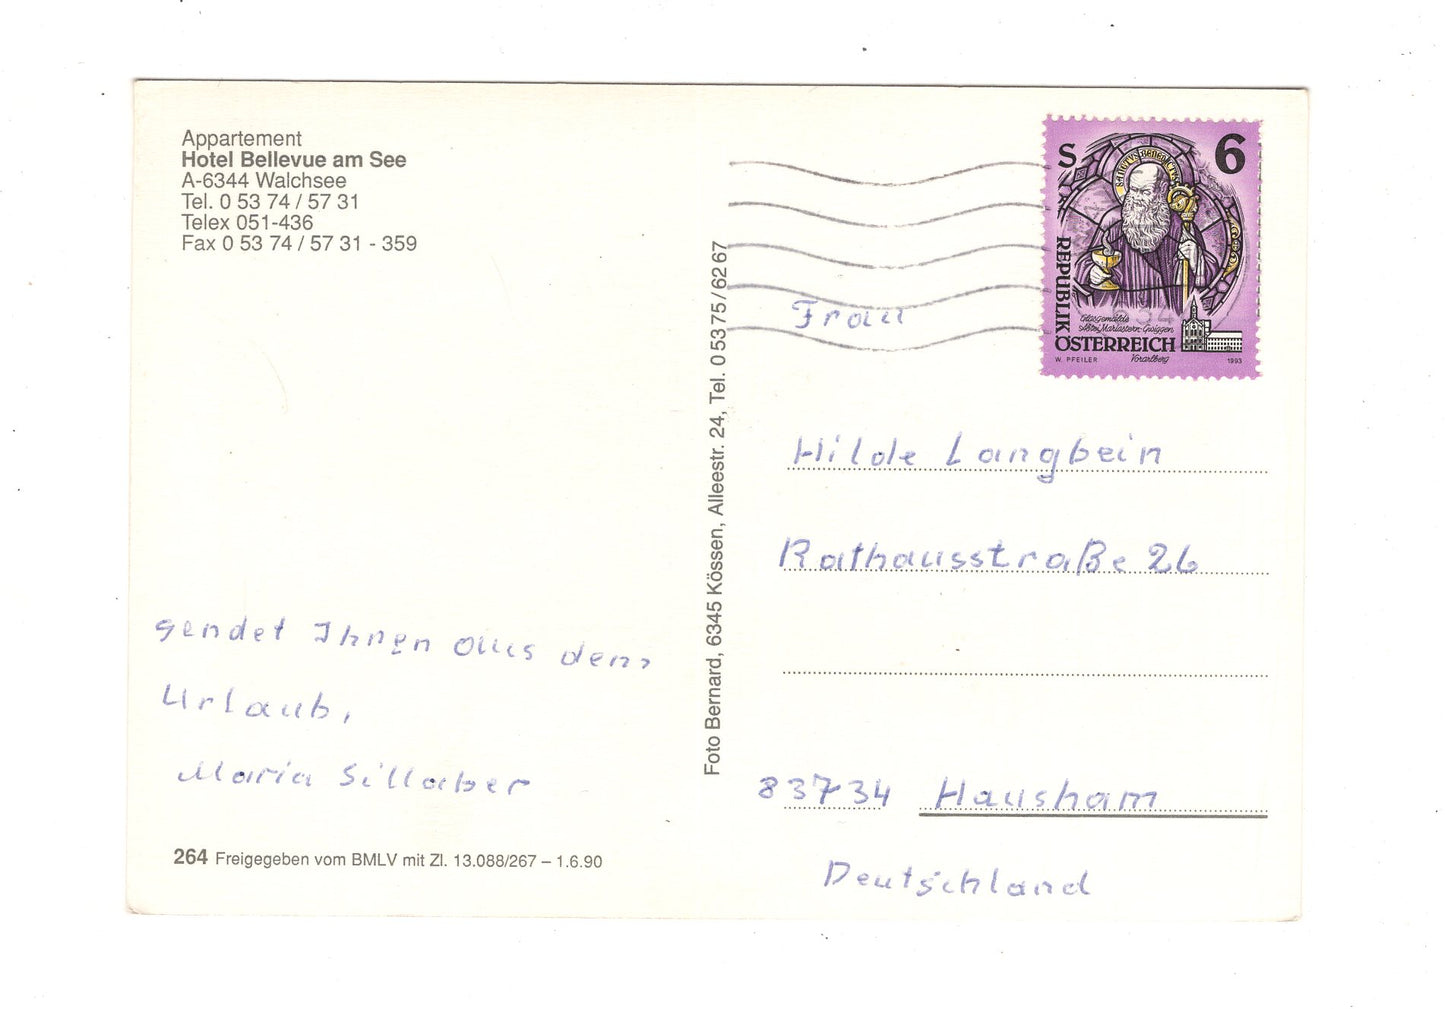 Appartement
Hotel Bellevue am See
A-6344 Walchsee
Tel. 0 53 74 / 57 31
Telex 051-436
Fax 0 53 74 / 57 31 - 359
sendet Ihnen aus dem
Urlaub,
Maria Sillaber
264 Freigegeben vom BMLV mit Zl. 13.088/267 – 1.6.90
Foto Bernard, 6345 Kössen, Alleestr. 24, Tel. 0 53 75 / 62 67
S 6
SANCTVS BENEDICTVS
REPUBLIK
Glasgemälde
Abtei Mariastern-Gwiggen
ÖSTERREICH
W. PFEILER Vorarlberg 1993
Frau
Hilde Langbein
Rathausstraße 26
83734 Hausham
Deutschland